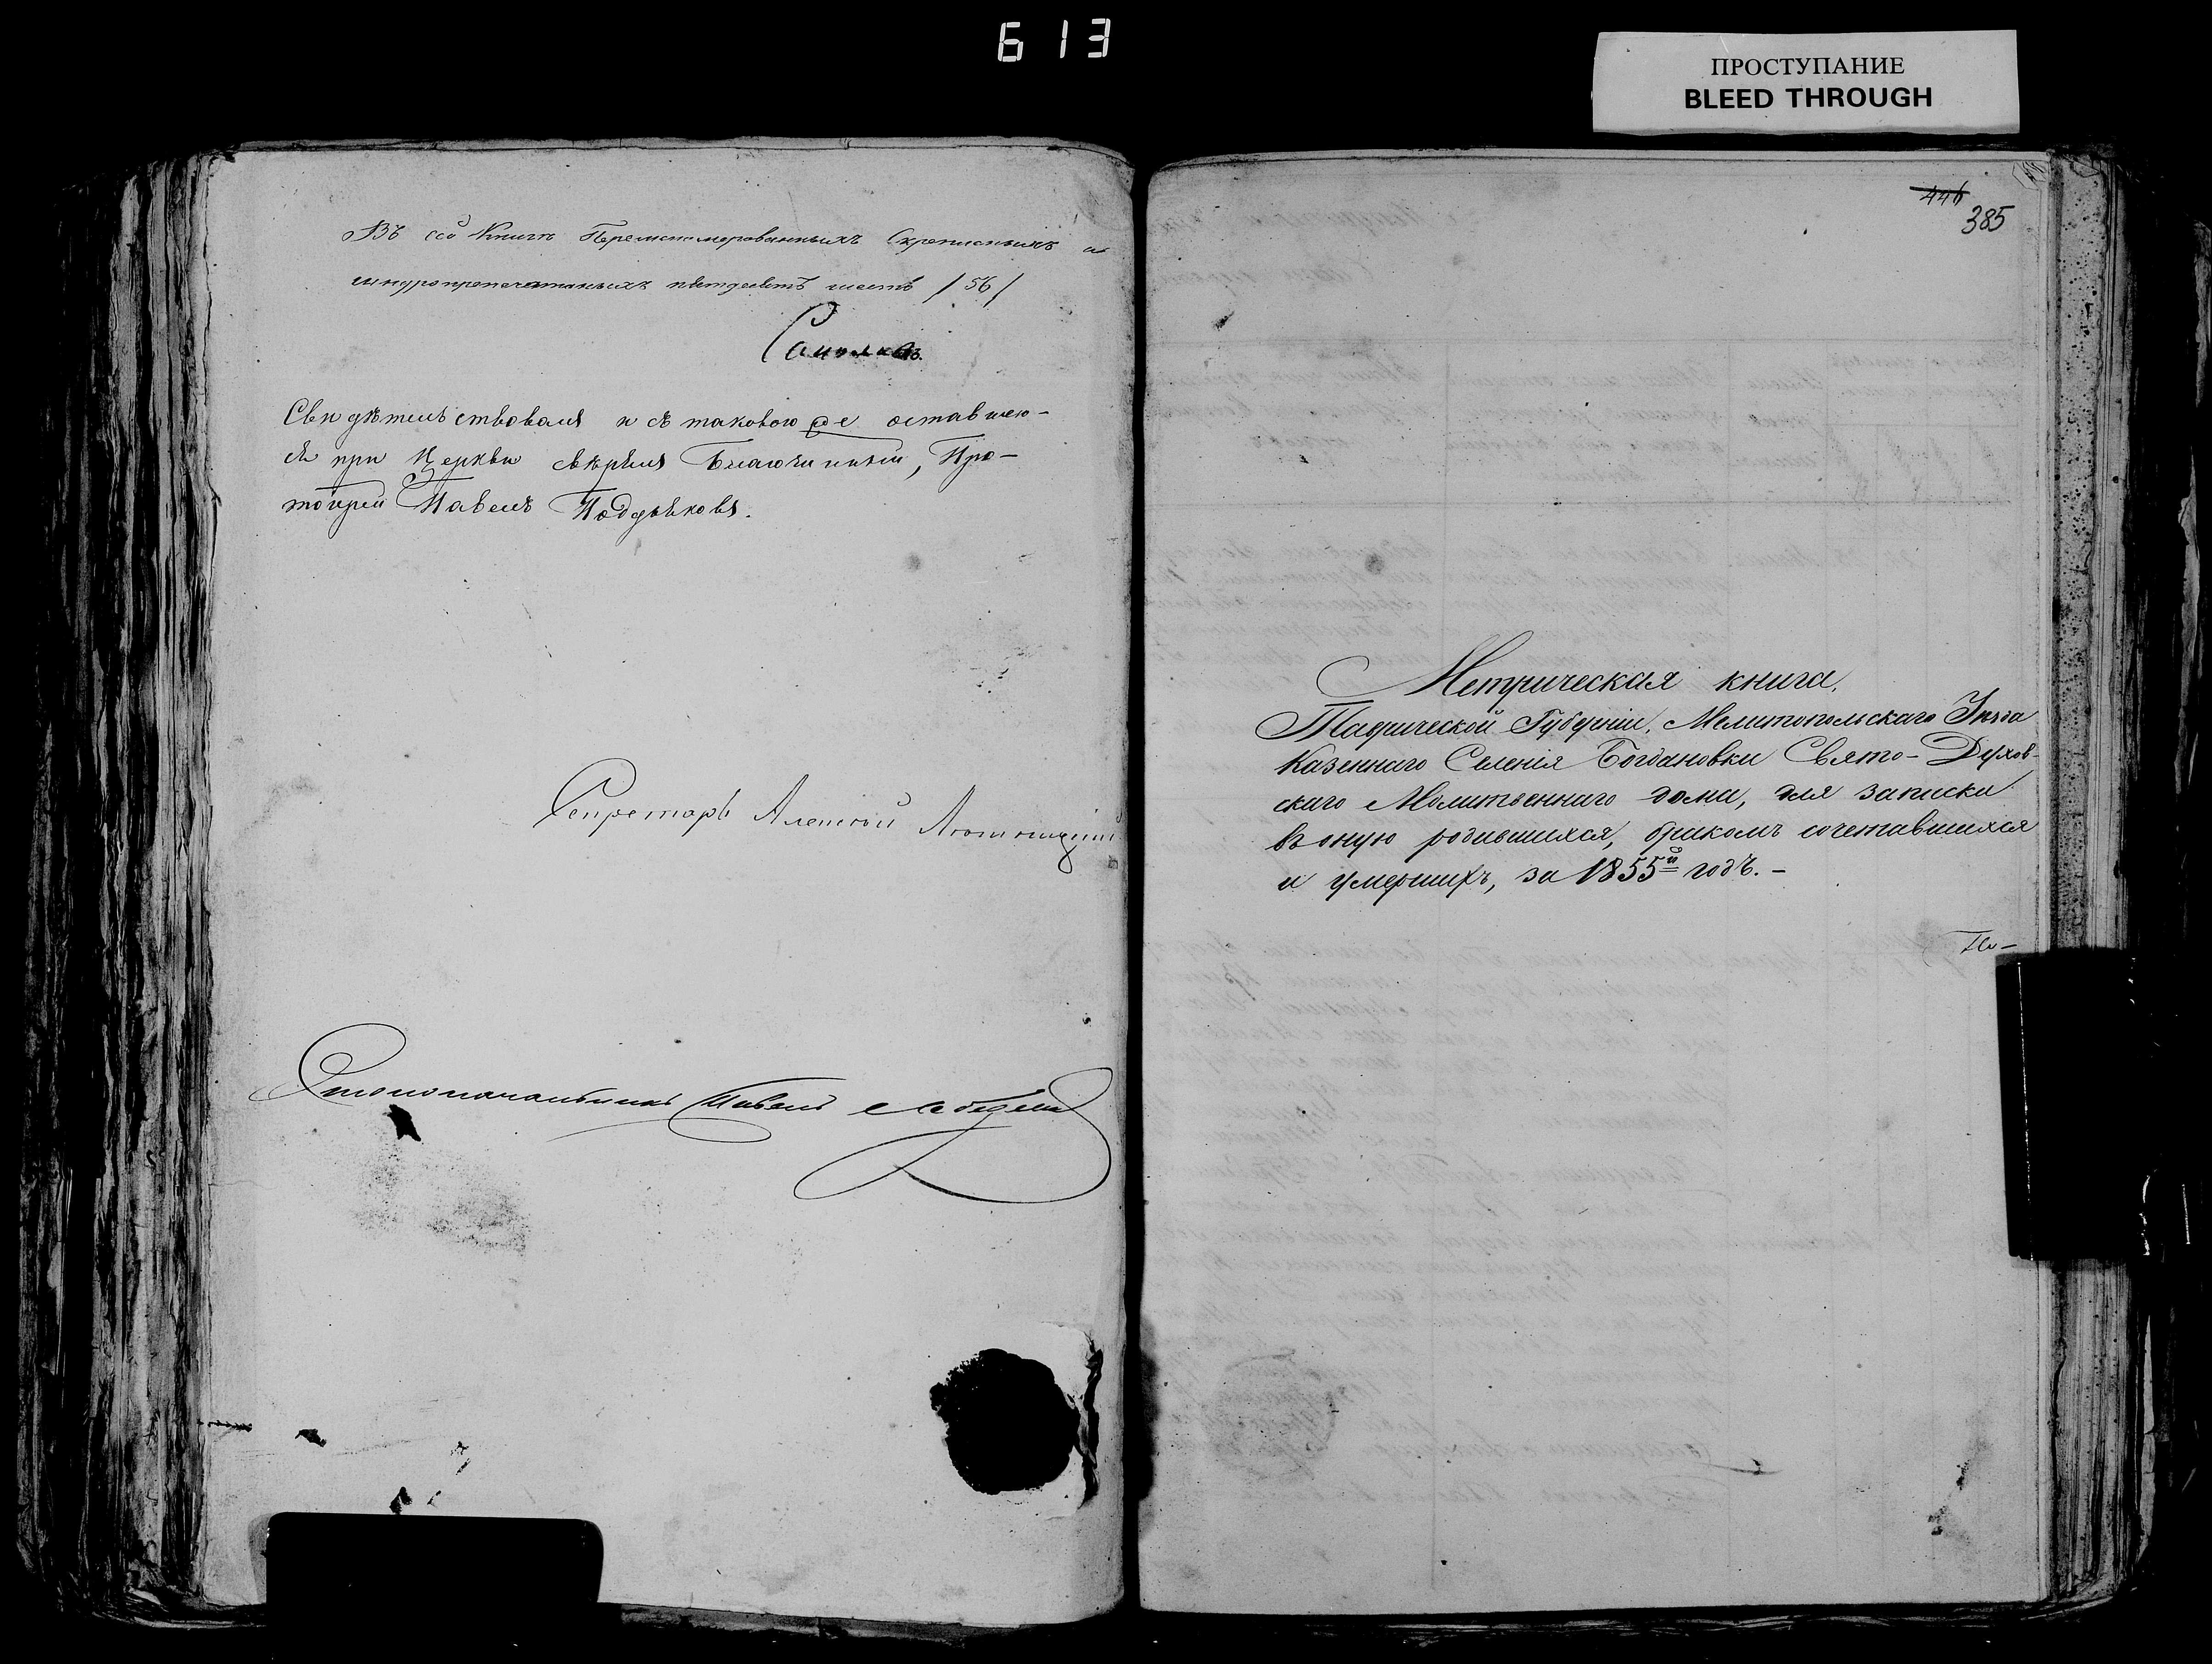 613
ПРОСТУПАНИЕ
BLEED THROUGH
Въ сей Книгѣ Перенумерованныхъ Скрепленныхъ и
шнуропрепечатанныхъ пятдесятъ шесть /56/
Свидѣтельствовалъ и съ таковою же оставшею-
ся при Церкви свѣрялъ Благочинный, Про-
тоіерей Павелъ Поддьяковъ.
Секретарь Алексѣй
Столоначальникъ Павелъ
446
385
Метрическая книга,
Таврической Губерніи, Мелитопольскаго Уѣзда
Казеннаго Селенія Богдановки Свято-Духов-
скаго Молитвеннаго дома, для записки
въ оную родившихся, бракомъ сочетавшихся
и умершихъ, за 1855й годъ.-
По-